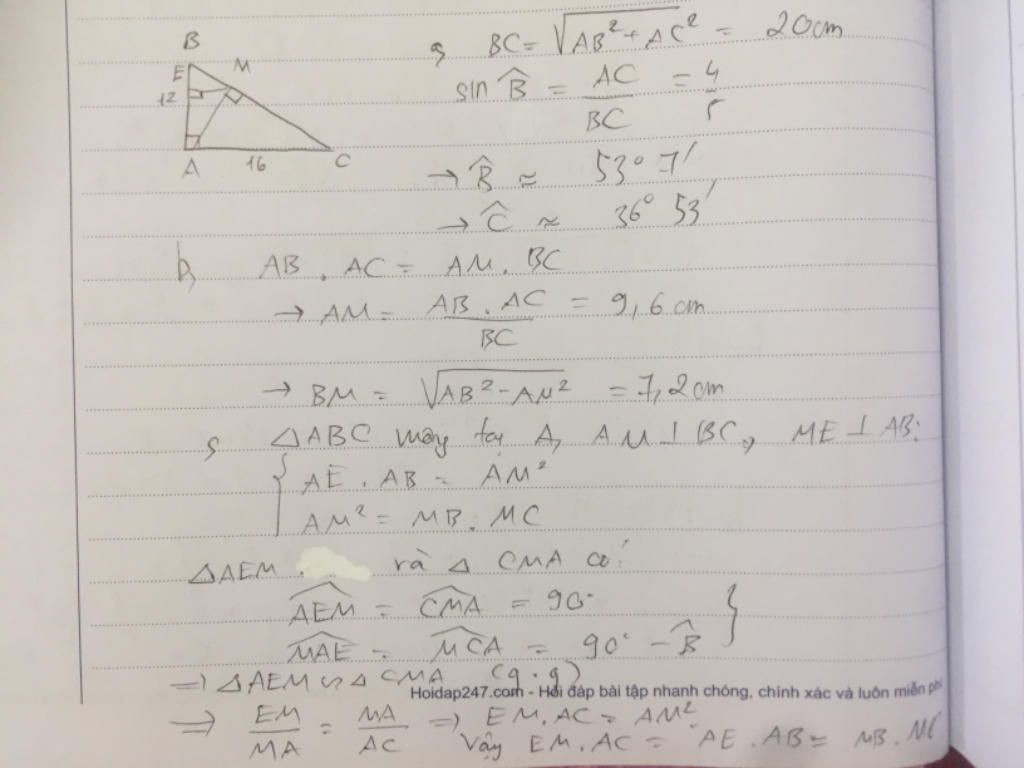 B
E M
12
A 16 C
a, BC = √AB² + AC² = 20cm
sin B̂ = AC/BC = 4/5
→ B̂ ≈ 53° 7'
→ Ĉ ≈ 36° 53'
b, AB . AC = AM . BC
→ AM = AB . AC/BC = 9,6 cm
→ BM = √AB² - AM² = 7,2 cm
c, △ABC vuông tại A, AM ⊥ BC, ME ⊥ AB:
{ AE . AB = AM²
AM² = MB . MC
△AEM và △ CMA có:
AEM = CMA = 90° }
MAE = MCA = 90° - B̂
=> △AEM ∽ △ CMA (g.g)
Hoidap247.com - Hỏi đáp bài tập nhanh chóng, chính xác và luôn miễn phí
=> EM/MA = MA/AC => EM.AC = AM²
Vậy EM.AC = AE.AB = MB.MC